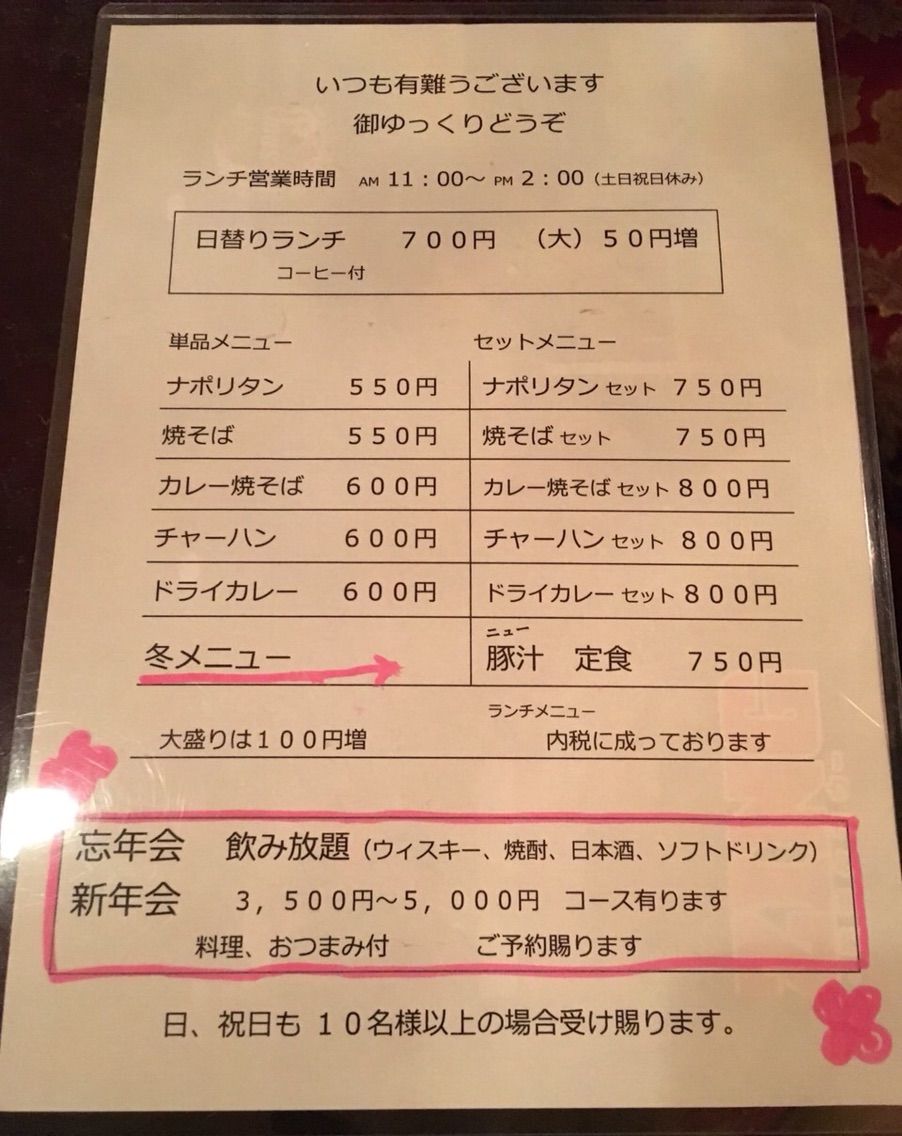 いつも有難うございます
御ゆっくりどうぞ
ランチ営業時間 AM 11：00～ PM 2：00（土日祝日休み）
日替りランチ ７００円 （大）５０円増
コーヒー付
単品メニュー セットメニュー
ナポリタン ５５０円 ナポリタン セット ７５０円
焼そば ５５０円 焼そば セット ７５０円
カレー焼そば ６００円 カレー焼そば セット ８００円
チャーハン ６００円 チャーハン セット ８００円
ドライカレー ６００円 ドライカレー セット ８００円
ニュー
冬メニュー 豚汁 定食 ７５０円
ランチメニュー
大盛りは１００円増 内税に成っております
忘年会 飲み放題（ウィスキー、焼酎、日本酒、ソフトドリンク）
新年会 ３，５００円～５，０００円 コース有ります
料理、おつまみ付 ご予約賜ります
日、祝日も １０名様以上の場合受け賜ります。